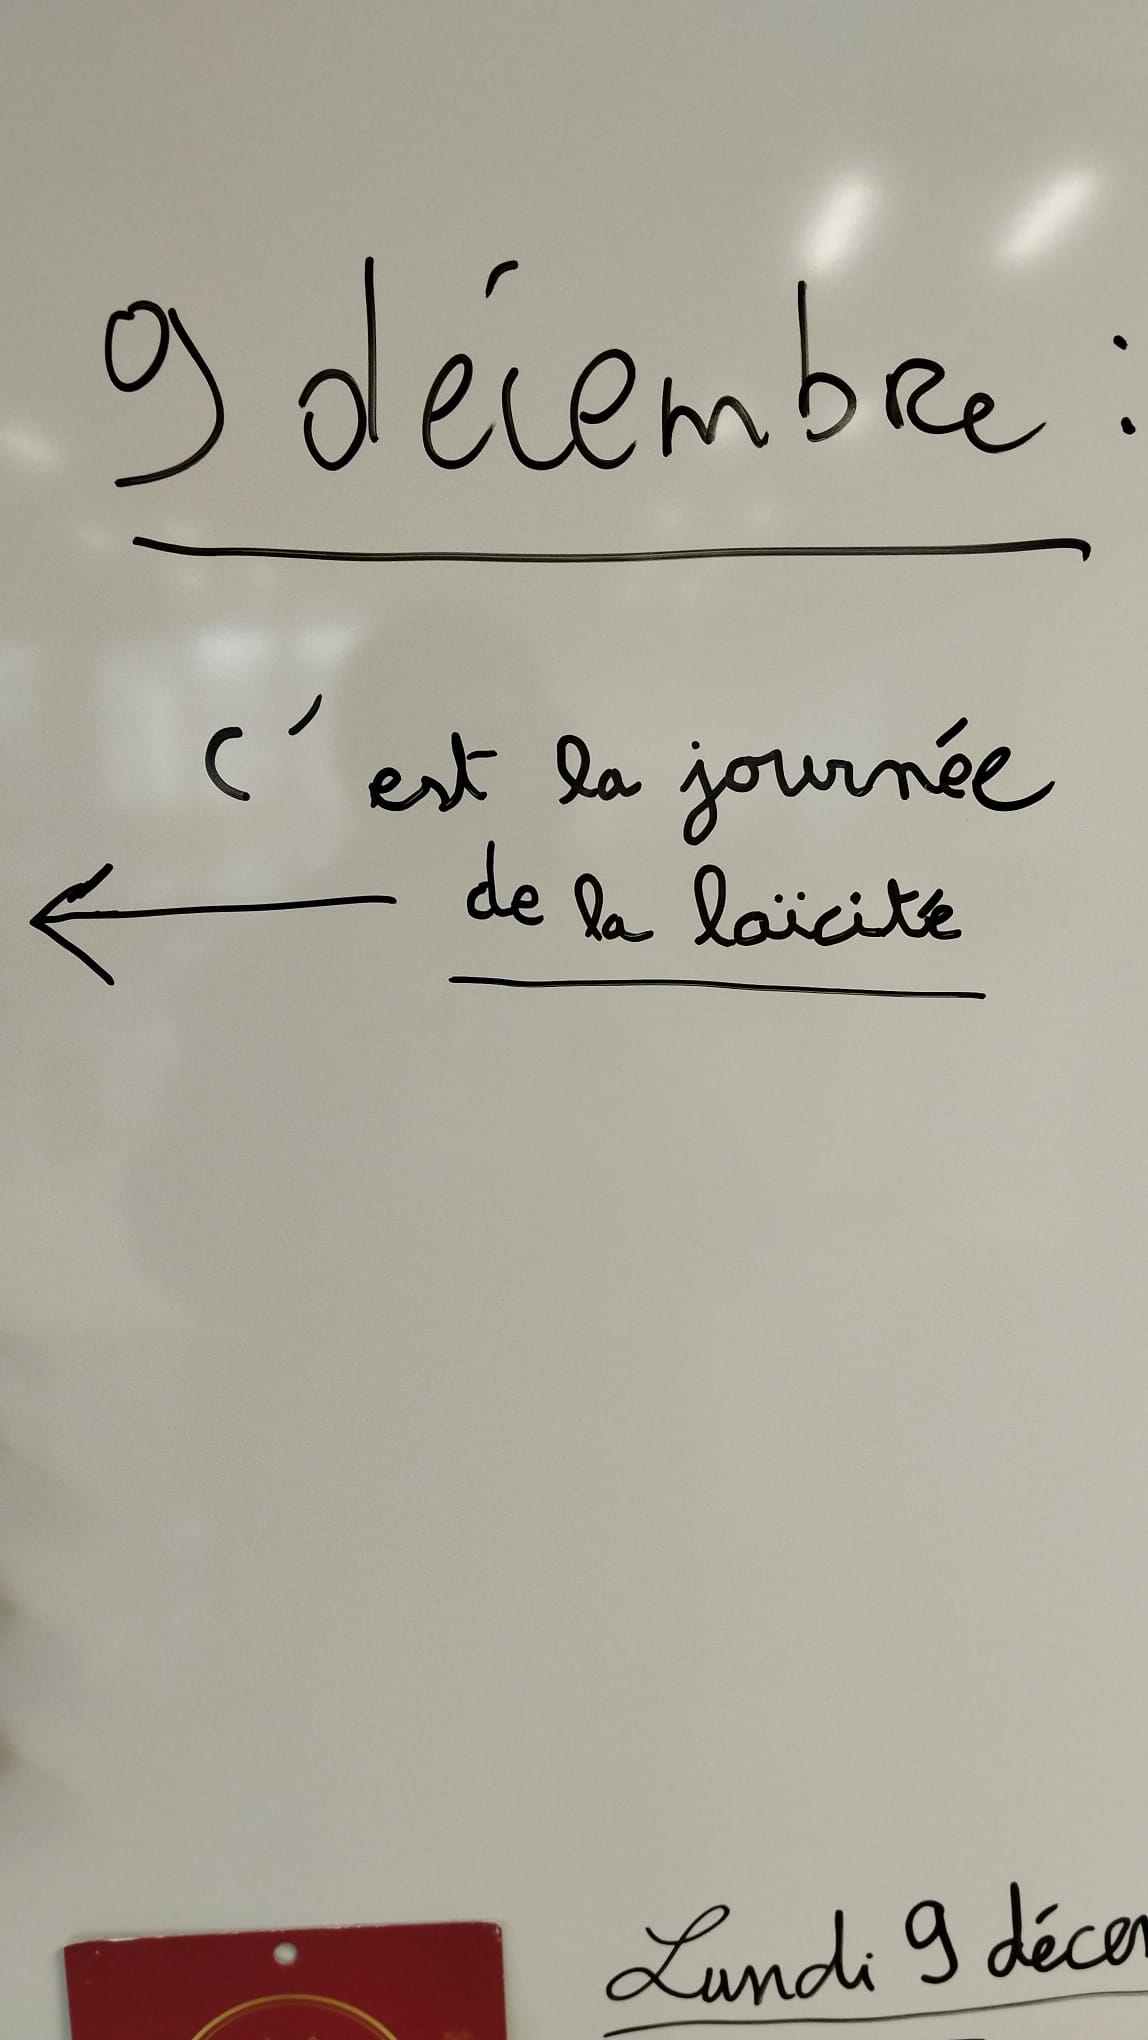 9 décembre :
C'est la journée
de la laïcité
Lundi 9 décem